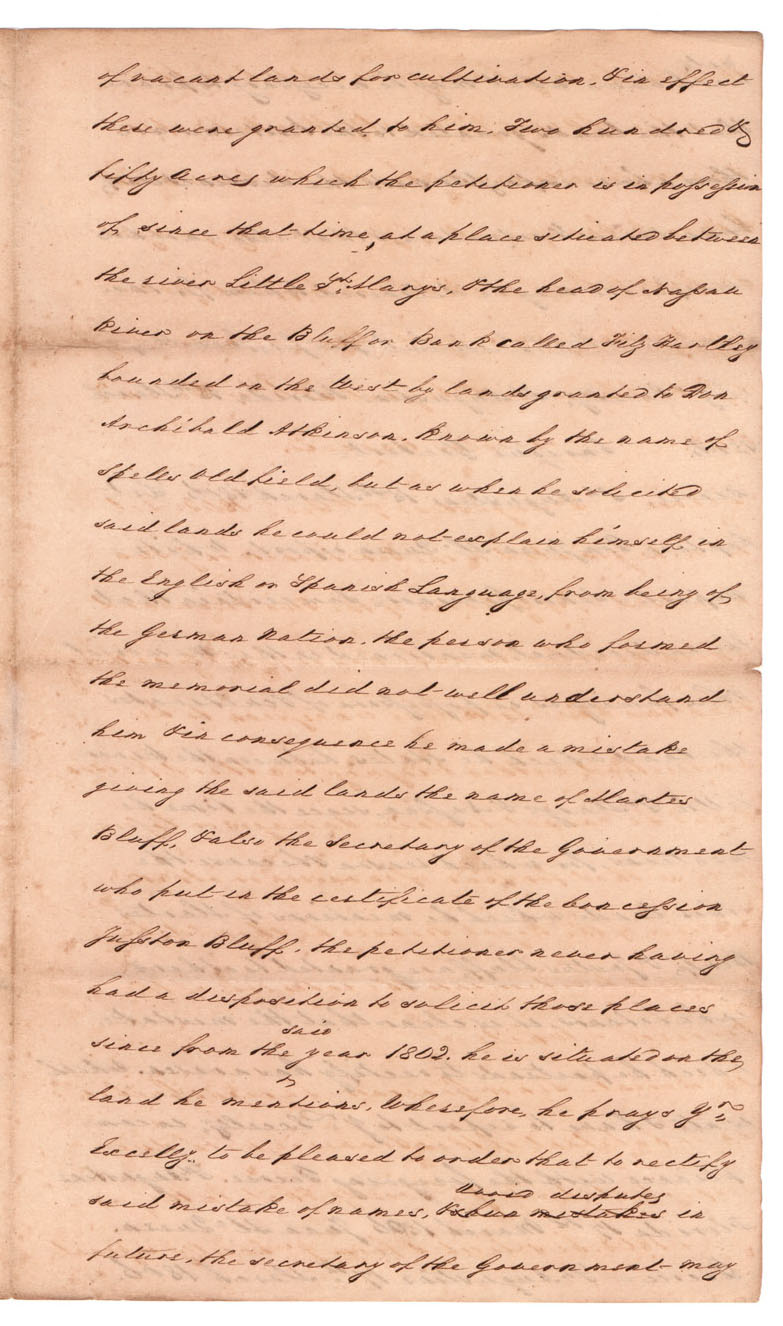 of vacant lands for cultivation, & in effect
these were granted to him, Two hundred &
fifty Acres which the petitioner is in possession
of since that time, at a place situated between
the river Little St. Marys, & the head of Nassau
River on the Bluff or Bank called Fitz Hartley
bounded on the West by lands granted to Don
Archibald Atkinson, known by the name of
Spells Old field, but as when he solicited
said lands he could not explain himself in
the English or Spanish Language, from being of
the German Nation, the person who formed
the memorial did not well understand
him & in consequence he made a mistake
giving the said lands the name of Martes
Bluff, & also the Secretary of the Government
who put in the certificate of the Concession
Bluff, the petitioner never having
had a disposition to solicit those places
said
since from the year 1802. he is situated on the
land he mentions, Wherefore, he prays Yr.
Excelly. to be pleased to order that to rectify
avoid disputes
said mistake of names, & shun mistakes in
future, the secretary of the Government may